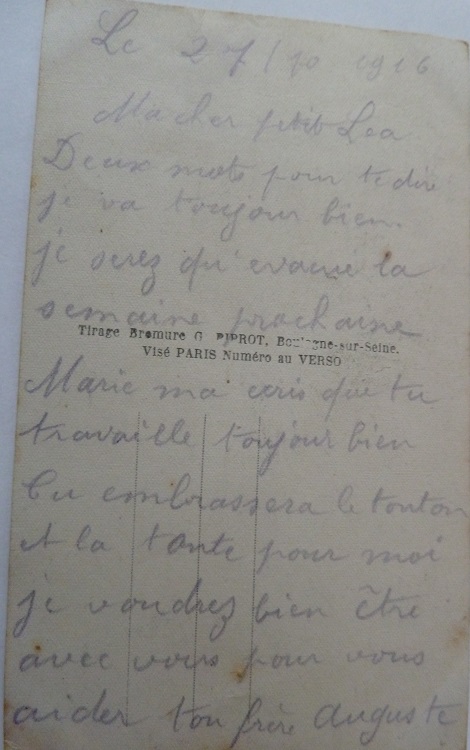 Le 27/10 1916
Ma cher petit Lea
Deux mots pour te dire
je va toujour bien.
je serez qu'evacue la
semaine prochaine
Tirage Bromure G. PIPROT, Boulogne-sur-Seine.
Visé PARIS Numéro au VERSO
Marie ma ecris que tu
travaille toujour bien
tu embrassera le tonton
et la tante pour moi
je voudrez bien être
avec vous pour vous
aider ton frère Auguste